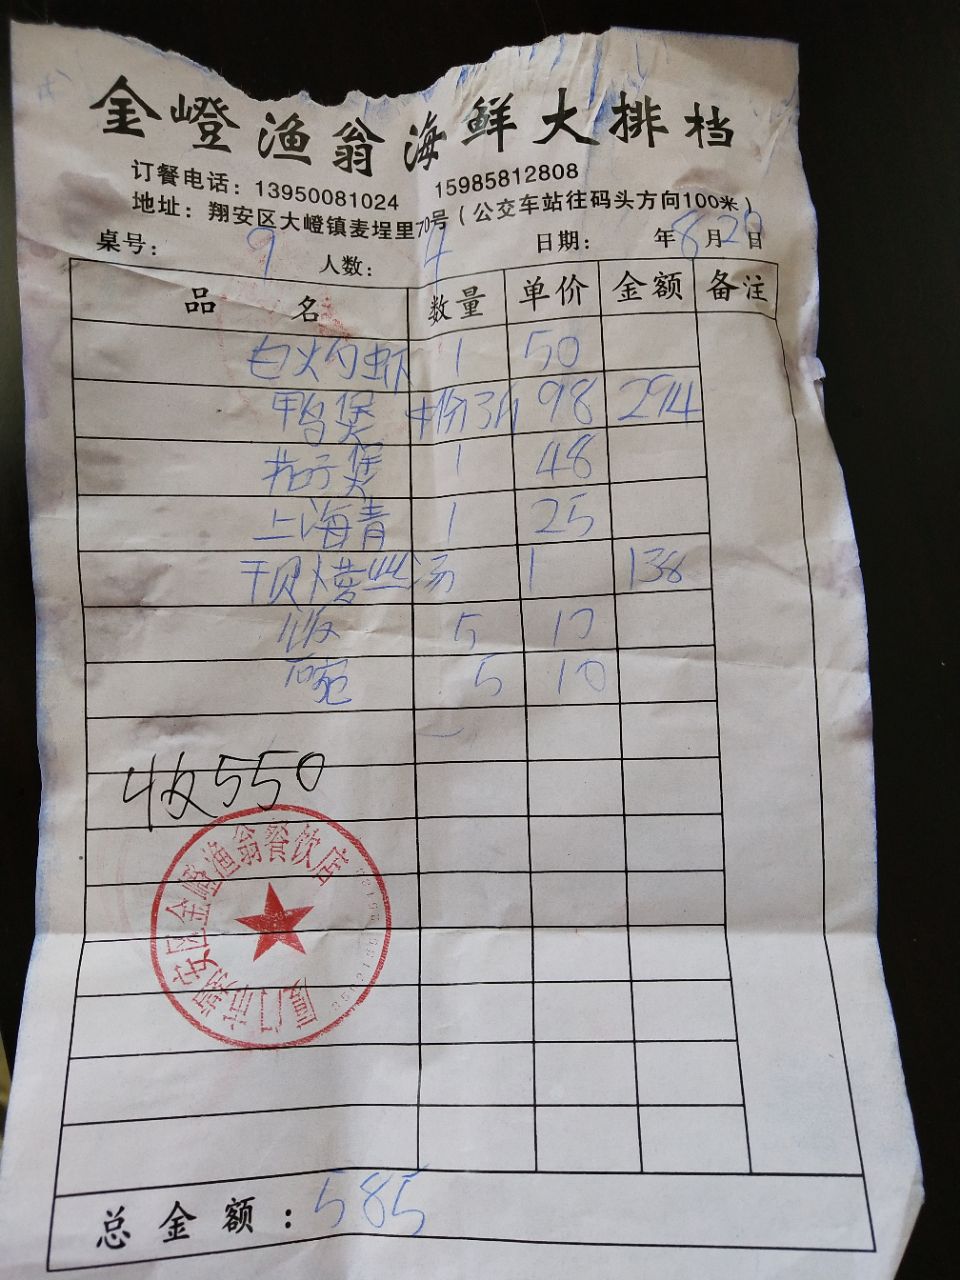 金嶝渔翁海鲜大排档
订餐电话：13950081024 15985812808
地址：翔安区大嶝镇麦埕里70号（公交车站往码头方向100米）
桌号：9 人数：4 日期： 年8月20日
品名 数量 单价 金额 备注
白火勺虾 1 50
鸭煲 98 294
煲 1 48
上海青 1 25
干贝 丝汤 1 138
饭 5 10
碗 5 10
收550
厦门市翔安区金嶝渔翁餐饮店
总金额：585